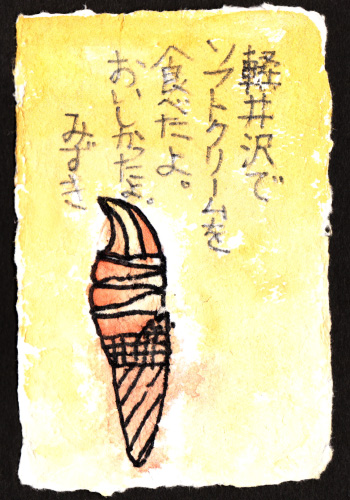 軽井沢で
ソフトクリームを
食べたよ。
おいしかったよ。
みずき